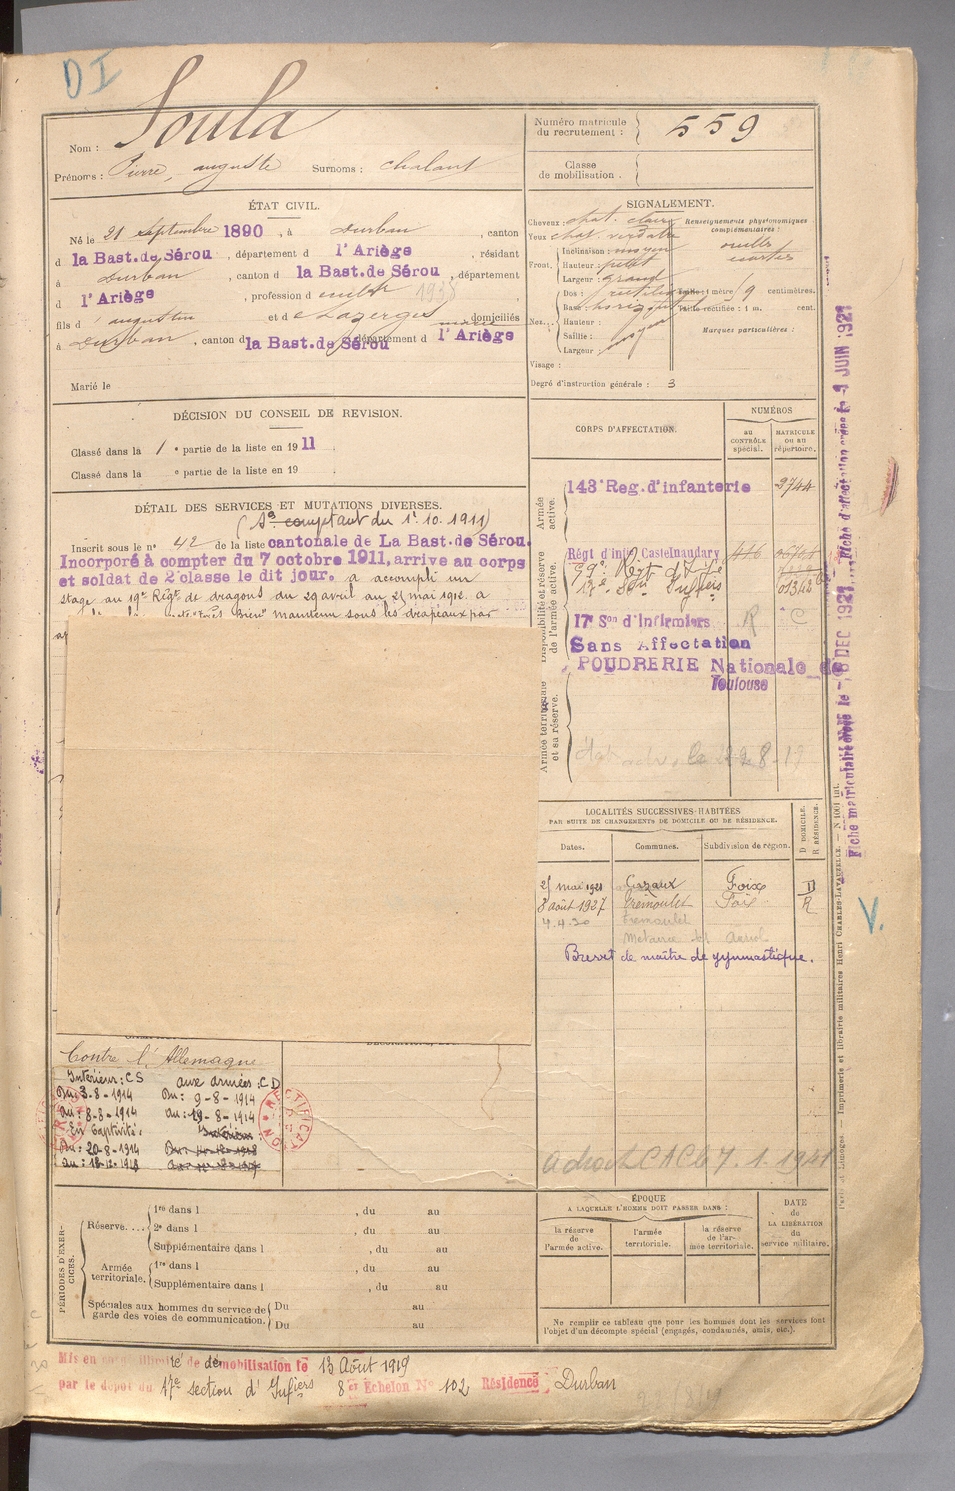 DI
Nom : Soula
Prénoms : Pierre, auguste Surnoms : chalant
Numéro matricule du recrutement : 559
Classe de mobilisation .
ÉTAT CIVIL.
Né le 21 septembre 1890, à Durban, canton
d la Bast. de Sérou, département d l'Ariège, résidant
à Durban, canton d la Bast. de Sérou, département
d l'Ariège, profession d cultr 1938
fils d'augustin et d domiciliés
à Durban, canton d la Bast. de Sérou département d l'Ariège
Marié le
SIGNALEMENT.
Cheveux : chat. clairs
Yeux chat. verdâtre
Front. Inclinaison : moyen
Hauteur : petit
Largeur : grand
Nez. Dos : rectiligne
Base : horizontal
Hauteur :
Saillie :
Largeur :
moyen
Visage :
Renseignements physionomiques complémentaires :
oreilles
écartées
Taille : 1 mètre centimètres.
Taille rectifiée : 1 m. cent.
Marques particulières :
Degré d'instruction générale : 3
DÉCISION DU CONSEIL DE REVISION.
Classé dans la 1e partie de la liste en 1911.
Classé dans la e partie de la liste en 19 .
CORPS D'AFFECTATION.
NUMÉROS
au CONTRÔLE spécial.
MATRICULE ou au répertoire.
Armée active.
143e Reg. d'infanterie
Disponibilité et réserve de l'armée active.
Régt d'infie Castelnaudary
59e Régt d'Infie
17e Son Infiers
013426
17e Son d'Infirmiers R C
Sans Affectation
POUDRERIE Nationale de
Toulouse
Armée territoriale et sa réserve.
DÉTAIL DES SERVICES ET MUTATIONS DIVERSES.
(So comptant du 1r. 10. 1911)
Inscrit sous le no 42 de la liste cantonale de La Bast. de Sérou.
Incorporé à compter du 7 octobre 1911, arrive au corps
et soldat de 2e classe le dit jour. a accompli un
stage au 19e Régt de dragons du 29 avril au 25 mai 1912. a
"très Bien" maintenu sous les drapeaux par
LOCALITÉS SUCCESSIVES HABITÉES
PAR SUITE DE CHANGEMENTS DE DOMICILE OU DE RÉSIDENCE.
Dates. Communes. Subdivision de région.
D DOMICILE.
R RÉSIDENCE.
25 mai 1921 Foix D
8 août 1927 Tremoulet Foix R
4.4.30 Tremoulet
Brevet de maître de gymnastique.
Contre l'Allemagne
Intérieur : CS
Du : 3-8-1914
au : 8-8-1914
En Captivité :
Du : 20-8-1914
au : 18-12-1918
aux armées : CD
Du : 9-8-1914
au : 19-8-1914
RECTIFICATION
7.1.1941
PÉRIODES D'EXERCICES.
Réserve....
1re dans l , du au
2e dans l , du au
Supplémentaire dans l , du au
Armée territoriale.
1re dans l , du au
Supplémentaire dans l , du au
Spéciales aux hommes du service de garde des voies de communication.
Du au
Du au
ÉPOQUE
A LAQUELLE L'HOMME DOIT PASSER DANS :
la réserve de l'armée active.
l'armée territoriale.
la réserve de l'armée territoriale.
DATE de LA LIBÉRATION du service militaire.
Ne remplir ce tableau que pour les hommes dont les services font
l'objet d'un décompte spécial (engagés, condamnés, omis, etc.).
Mis en congé illimité de démobilisation le 13 Août 1919
par le dépôt du 17e section d'Infiers 8e Echelon No 102 Résidence Durban
Imprimerie et librairie militaires Henri CHARLES-LAVAUZELLE. — N 1001 int.
Fiche matriculaire créée le - 8 DEC 1921
Fiche d'affectation créée le - 9 JUIN 1921
V.